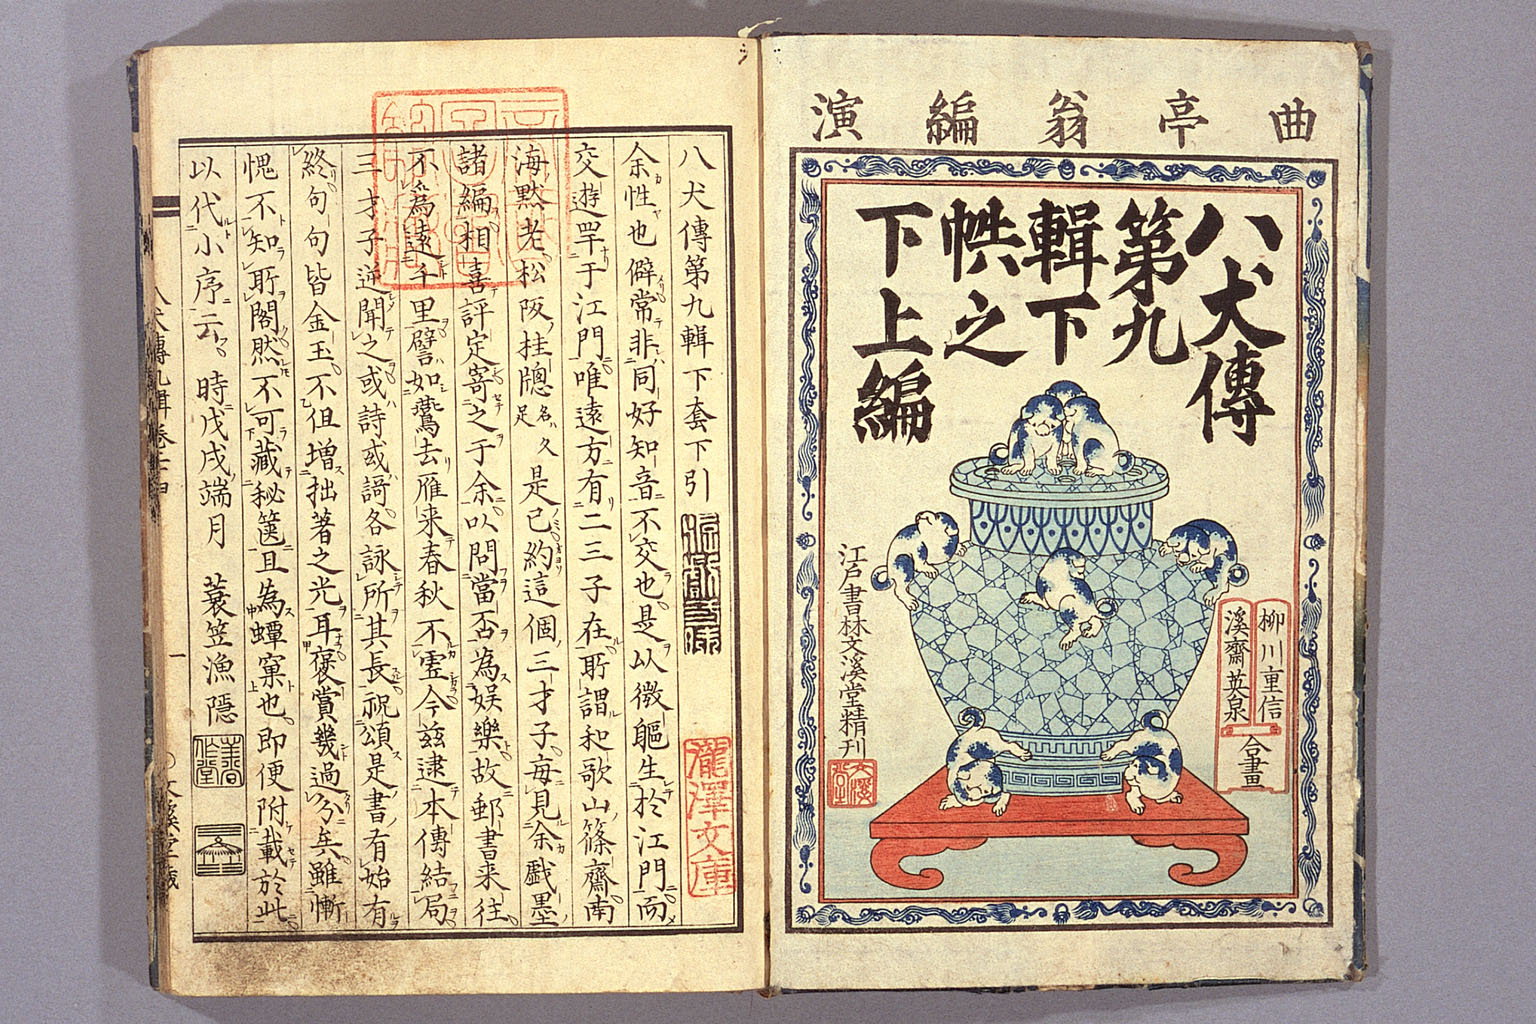 曲亭翁編演
八犬傳
第九
輯下
帙之
下上編
柳川重信
溪齋英泉
合畫
江戸書林文溪堂精刊
文溪堂
八犬傳第九輯下套下引
瀧澤文庫
余性也僻常非同好知音不交也是以微軀生於江門而
交遊罕于江門唯遠方有二三子在所謂和歌山篠齋南
海默老松阪桂牕是已約這個三才子每見余戲墨
諸編相喜評定寄之于余以問當否為娯樂故郵書来往
不為遠千里譬如鴬去雁来春秋不虚今茲逮本傳結局
三才子逆聞之或詩或謌各詠所其長祝頌是書有始有
終句句皆金玉不但増拙著之光耳褒賞幾過分矣雖慚
愧不知所閣然不可藏秘篋且為蟫窠也即便附載於此
以代小序云 時戊戌端月 蓑笠漁隱